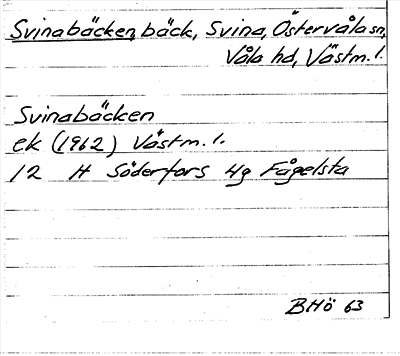 Svinabäcken, bäck, Svina, Östervåla sn,
Våla hd, Västm. l.
Svinabäcken
ek (1962) Västm. l.
12 H Söderfors 4g Fågelsta
BHö 63